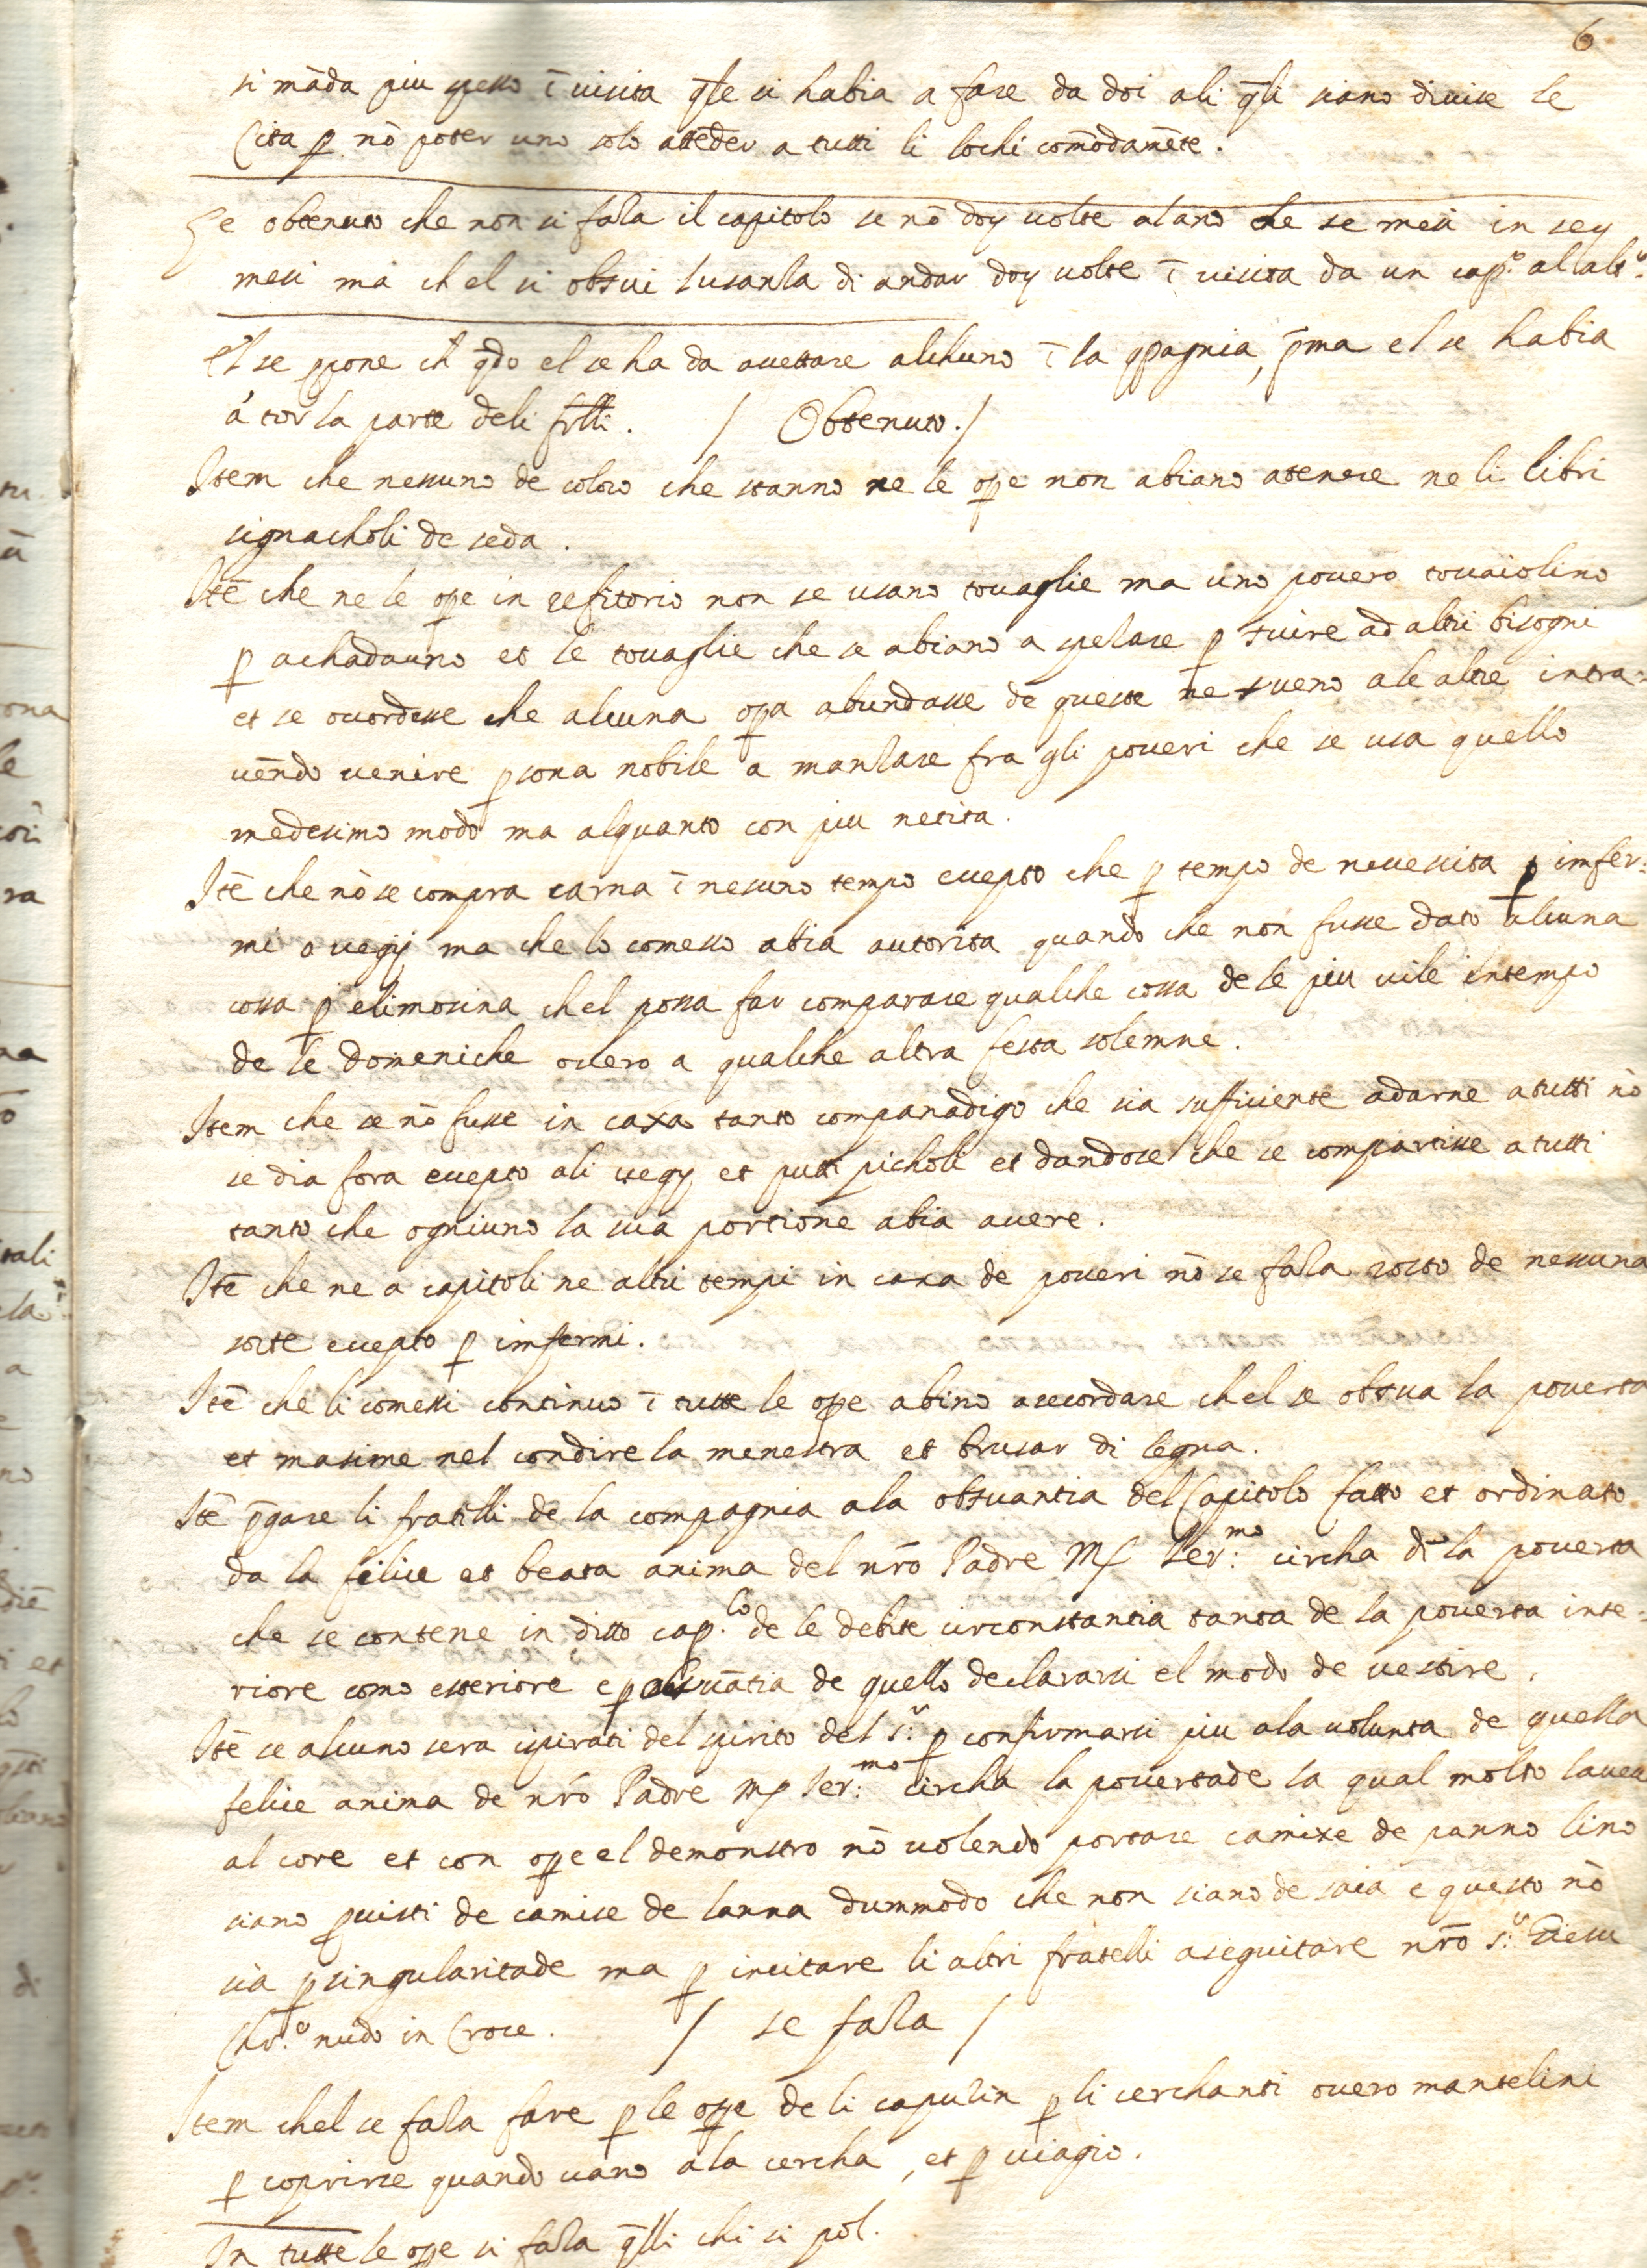 6
si māda piu spesso ī visita q̄le si habia a fare da doi ali q̄li siano divise le
Cita p nō poter uno solo attēder a tutti li lochi comōdamēte.
Se obtenuto che non si faza il capitolo se nō doy volte alano che se mesi in sey
mesi ma ch el si obsvi lusanza di andar doy volte ī visita da un cap.º al alt.º
El se ppone ch q̄do el se ha da acettare alchuno ī la cōpagnia, p̄ma el se habia
a tor la parte deli frlli. / Obtenuto. /
Item che nessuno de coloro che stanno ne le ope non abiano atenere ne li libri
signacholi de seda.
Itē che ne le ope in refitorio non se usano tovaglie ma uno povero tovaiolino
p achadauno et le tovaglie che se abiano a spelare p svire ad altri bisogni
et se acordesse che alcuna opa abundasse de queste ne sveno ale altre intra-
vēndo venire psona nobile a manzare fra gli poveri che se usa quello
medesimo modo ma alquanto con piu netita.
Itē che nō se compra carna ī nesuno tempo ecepto che p tempo de necessita p imfer:
mi o vegij ma che lo comesso abia autorita quando che non fusse dato alcuna
cossa p elimosina chel possa far comparare qualche cossa de le piu vile intempo
de le domeniche overo a qualche altra festa solemne.
Item che se nō fusse in caxa tanto companadigo che sia sufficiente adarne atutti nō
se dia fora ecepto ali vegy et putti picholi et dandose che se compartisse a tutti
tanto che ogniuno la sua portione abia avere.
Itē che ne a capitoli ne altri tempi in caxa de poveri nō se faza rosto de nessuna
sorte ecepto p imfermi.
Itē che li comessi continuo ī tutte le ope abino arecordare chel se obsva la poverta
et masime nel condire la menestra et brusar di legna.
Itē p̄gare li fratelli de la compagnia ala obsvantia del Capitolo fatto et ordinato
da la felice et beata anima del nr̄o Padre Mſ Ier:mo circha di la poverta
che se contene in ditto cap.lo de le debite circonstantia tanta de la poverta inte-
riore como esteriore e p obsvātia de quello declararsi el modo de vestire.
Itē se alcuno sera ispirati del spirito del S.r p confirmarsi piu ala volunta de quella
felice anima de nr̄o Padre Mſ Ier:mo circha la povertade la qual molto lavea
al core et con ope el demonstro nō volendo portare camixe de panno lino
siano pvisti de camise de lanna dummodo che non siano de saia e questo nō
sia p singularitade ma p incitare li altri fratelli aseguitare nr̄o S.r Giesu
Chr.º nudo in Croce. / se faza /
Item chel se faza fare p le ope de li capuzin p li cerchanti overo mantelini
p coprirse quando vano ala cercha, et p viagio.
In tutte le ope si faza q̄lli chi si pol.